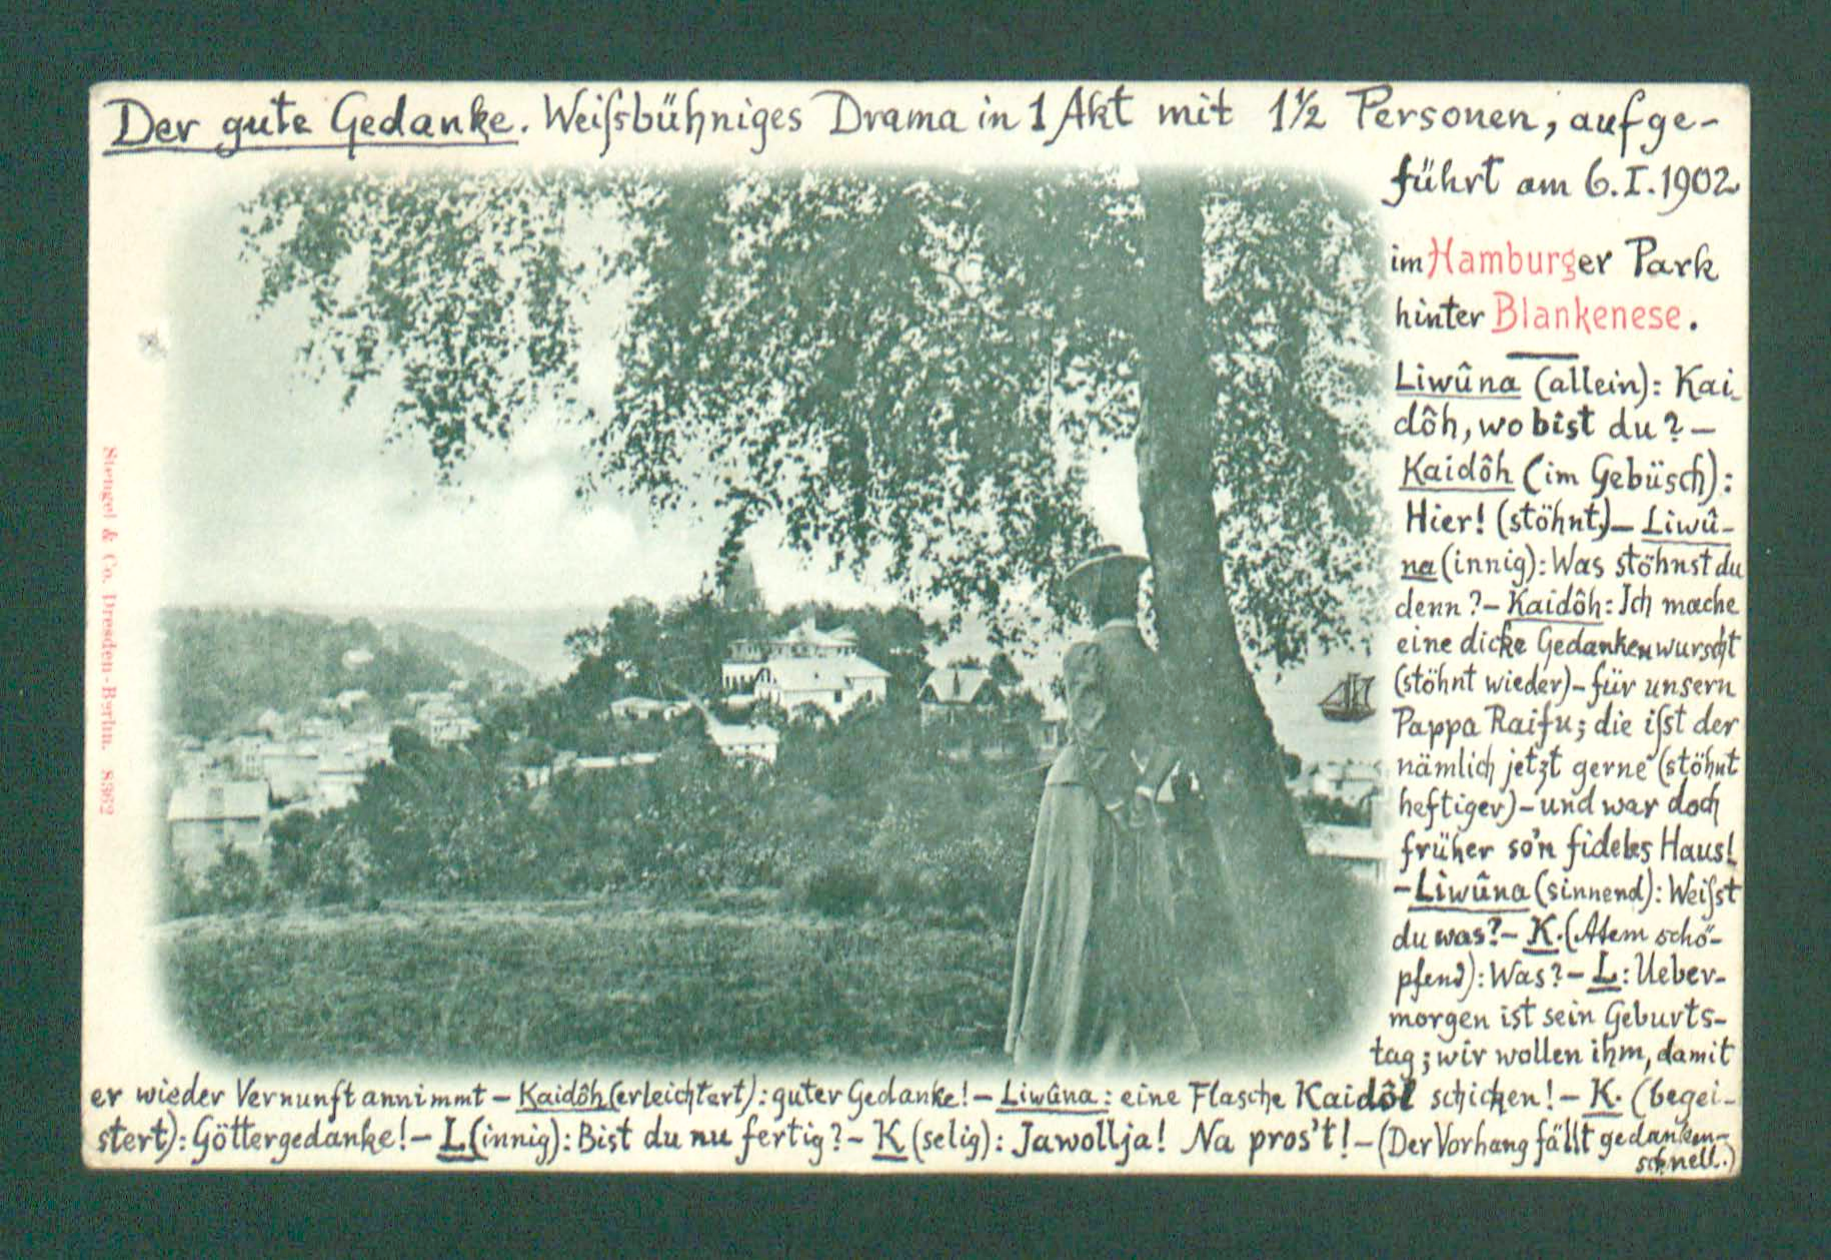 Der gute Gedanke. Weiſsbühniges Drama in 1 Akt mit 1½ Personen, aufge-
führt am 6. I. 1902
im Hamburger Park
hinter Blankenese.
Liwûna (allein): Kai-
dôh, wo bist du? —
Kaidôh (im Gebüsch):
Hier! (stöhnt) — Liwû-
na (innig): Was stöhnst du
denn? — Kaidôh: Ich mache
eine dicke Gedankenwurscht
(stöhnt wieder) — für unsern
Pappa Raifu; die iſst der
nämlich jetzt gerne (stöhnt
heftiger) — und war doch
früher so'n fideles Haus!
— Liwûna (sinnend): Weiſst
du was? — K. (Atem schö-
pfend): Was? — L: Ueber-
morgen ist sein Geburts-
tag; wir wollen ihm, damit
er wieder Vernunft annimmt — Kaidôh (erleichtert): guter Gedanke! — Liwûna: eine Flasche Kaidôl schicken! — K. (begei-
stert): Göttergedanke! — L (innig): Bist du nu fertig? — K (selig): Jawollja! Na pros't! — (Der Vorhang fällt gedanken-
schnell.)
Stengel & Co. Dresden-Berlin. 8962